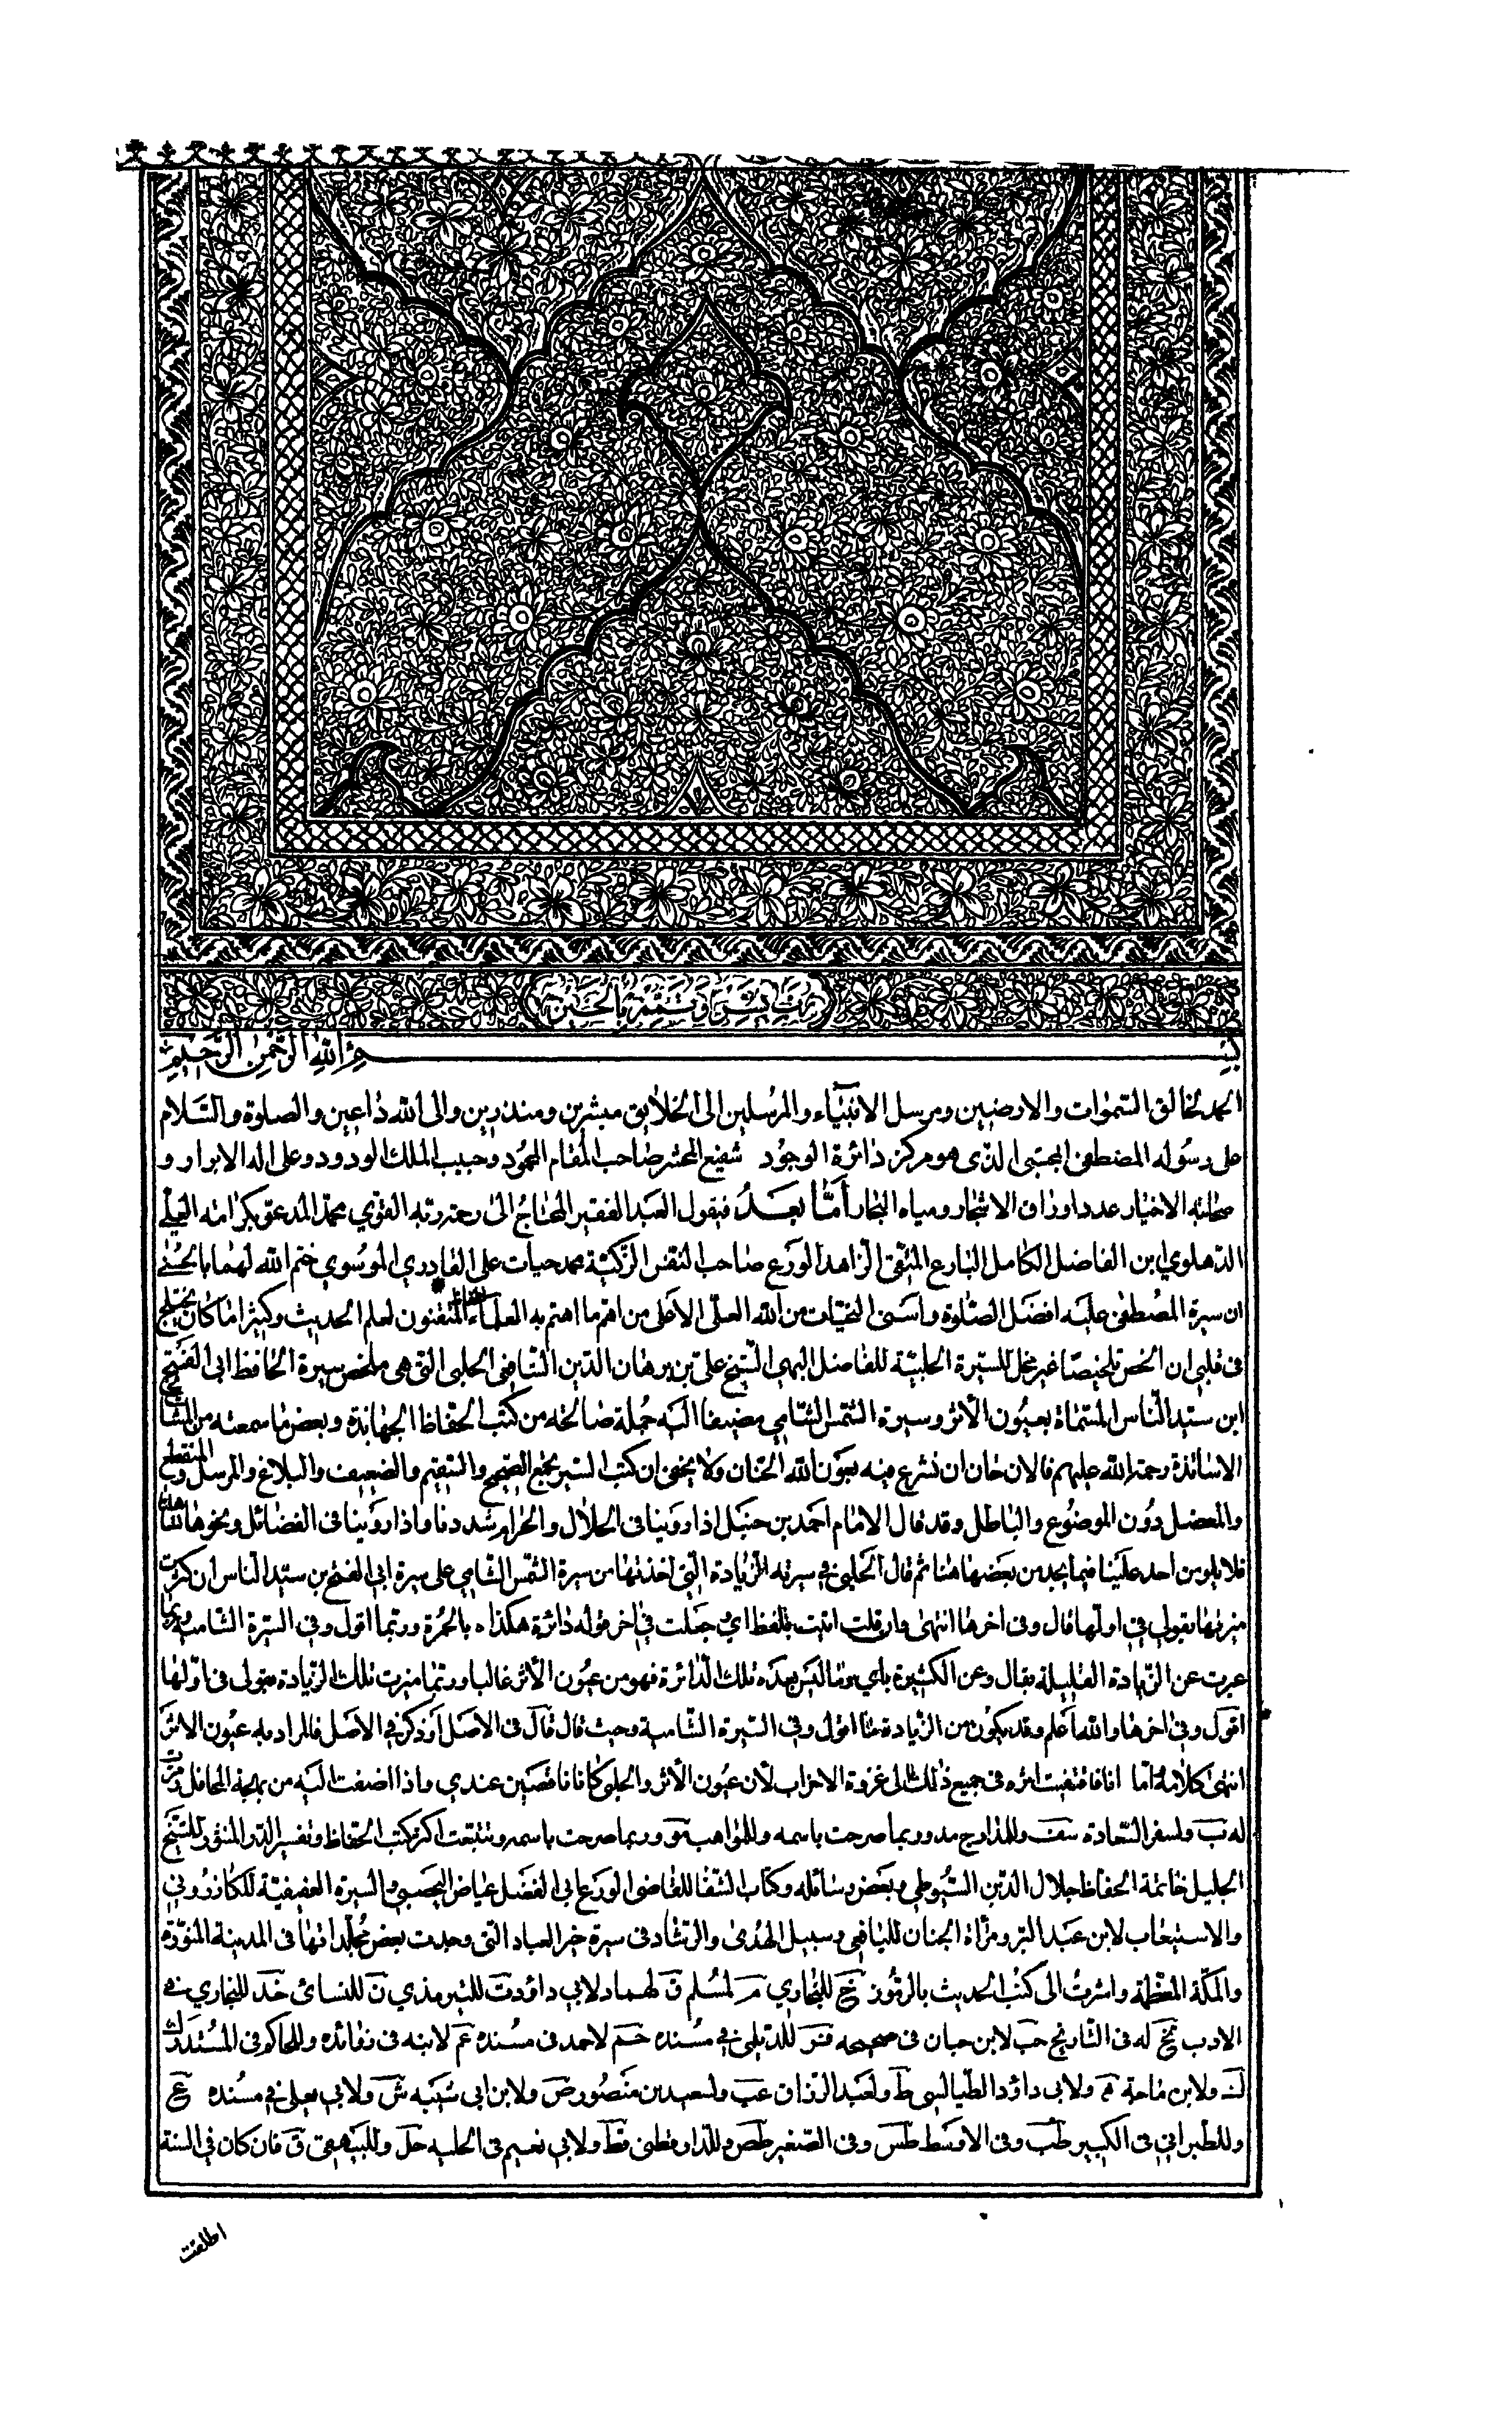 رب يسر وتمم بالخير
بسم الله الرحمن الرحيم
الحمد لخالق السموات والارضين ومرسل الانبياء والمرسلين الى الخلايق مبشرين ومنذرين والى الله داعين والصلوة والسلام
على رسوله المصطفى المجتبى الذى هو مركز دائرة الوجود شفيع المحشر صاحب المقام المحمود وحبيب الملك الودود وعلى اله الابرار و
صحابته الاخيار عدد اوراق الاشجار ومياه البحار أما بعد فيقول العبد الفقير المحتاج الى رحمة ربه القوي محمد المدعو بكرامة العلي
الدهلوي ابن الفاضل الكامل البارع المتقى الزاهد الورع صاحب النفس الزكية محمد حيات على القادري الموسوي ختم الله لهما بالحسنى
ان سيرة المصطفى عليه افضل الصلوة واسنى التحيات من الله العلى الاعلى من اهم ما اهتم به العلماء الحفاظ المتقنون لعلم الحديث وكثيرا ما كان يختلج
فى قلبي ان الخص تلخيصا غير مخل للسيرة الحلبية للفاضل البهي الشيخ على بن برهان الدين الشافعي الحلبي التي هي ملخص سيرة الحافظ ابى الفتح
ابن سيد الناس المسماة بعيون الأثر وسيرة الشمس الشامي مضيفا اليه جملة صالحة من كتب الحفاظ الجهابذة وبعض ما سمعته من المشايخ
الاساتذة رحمة الله عليهم فالان حان ان نشرع فيه بعون الله الحنان ولا يخفى ان كتب السير يجمع الصحيح والسقيم والضعيف والبلاغ والمرسل والمنقطع
والمعضل دون الموضوع والباطل وقد قال الامام احمد بن حنبل اذا روينا فى الحلال والحرام شددنا واذا روينا فى الفضائل ونحوها تساهلنا
فلا يلومن احد علينا فيما يجد من بعضها هنا ثم قال الحلبي في سيرته الزيادة التي اخذتها من سيرة الشمس الشامي على سيرة ابى الفتح بن سيد الناس ان كثرت
ميزتها بقولي في اولها قال وفى اخرها انتهى وان قلت اتيت بلفظ اي وجعلت في اخر قوله دائرة هكذا ه بالحمرة وربما اقول وفى السيرة الشامية وربما
عبرت عن الزيادة القليلة بقال وعن الكثيرة باي وما ليس بعده تلك الدائرة فهو من عيون الأثر غالبا وربما ميزت تلك الزيادة بقولى فى اولها
اقول وفى اخرها والله اعلم وقد يكون من الزيادة ما اقول وفى السيرة الشامية وحيث قال قال فى الاصل او ذكر في الاصل فالمراد به عيون الاثر
انتهى كلامه اما انا فاقتفيت اثره فى جميع ذلك الى غزوة الاحزاب لان عيون الأثر والحلبي كانا ناقصين عندي واذا اضفت اليه من بهجة المحافل رمزت
له بب ولسفر السعادة سف وللمدارج مد وربما صرحت باسمه وللمواهب مو وربما صرحت باسمه وتتبعت اكثر كتب الحفاظ وتفسير الدر المنثور للشيخ
الجليل خاتمة الحفاظ جلال الدين السيوطي وبعض رسائله وكتاب الشفا للقاضى الورع ابى الفضل عياض اليحصبي والسيرة العفيفية للكازروني
والاستيعاب لابن عبد البر ومرآة الجنان لليافعي وسبيل الهدى والرشاد فى سيرة خير العباد التي وجدت بعض مجلداتها فى المدينة المنورة
والمكة المعظمة واشرت الى كتب الحديث بالرموز خ للبخاري م لمسلم ق لهما د لابي داؤد ت للترمذي ن للنسائ خد للبخاري في
الادب تخ له فى التاريخ حب لابن حبان فى صحيحه فر للديلمي في مسنده حم لاحمد فى مسنده عم لابنه فى زوائده وللحاكم فى المستدرك
ك ولابن ماجة ه ولابى داؤد الطيالسي ط ولعبد الرزاق عب ولسعيد بن منصور ص ولابن ابى شيبه ش ولابي يعلى في مسنده ع
وللطبراني فى الكبير طب وفى الاوسط طس وفى الصغير طص وللدارقطني قط ولابي نعيم فى الحلية حل وللبيهقي ق فان كان في السنة
اطلقت